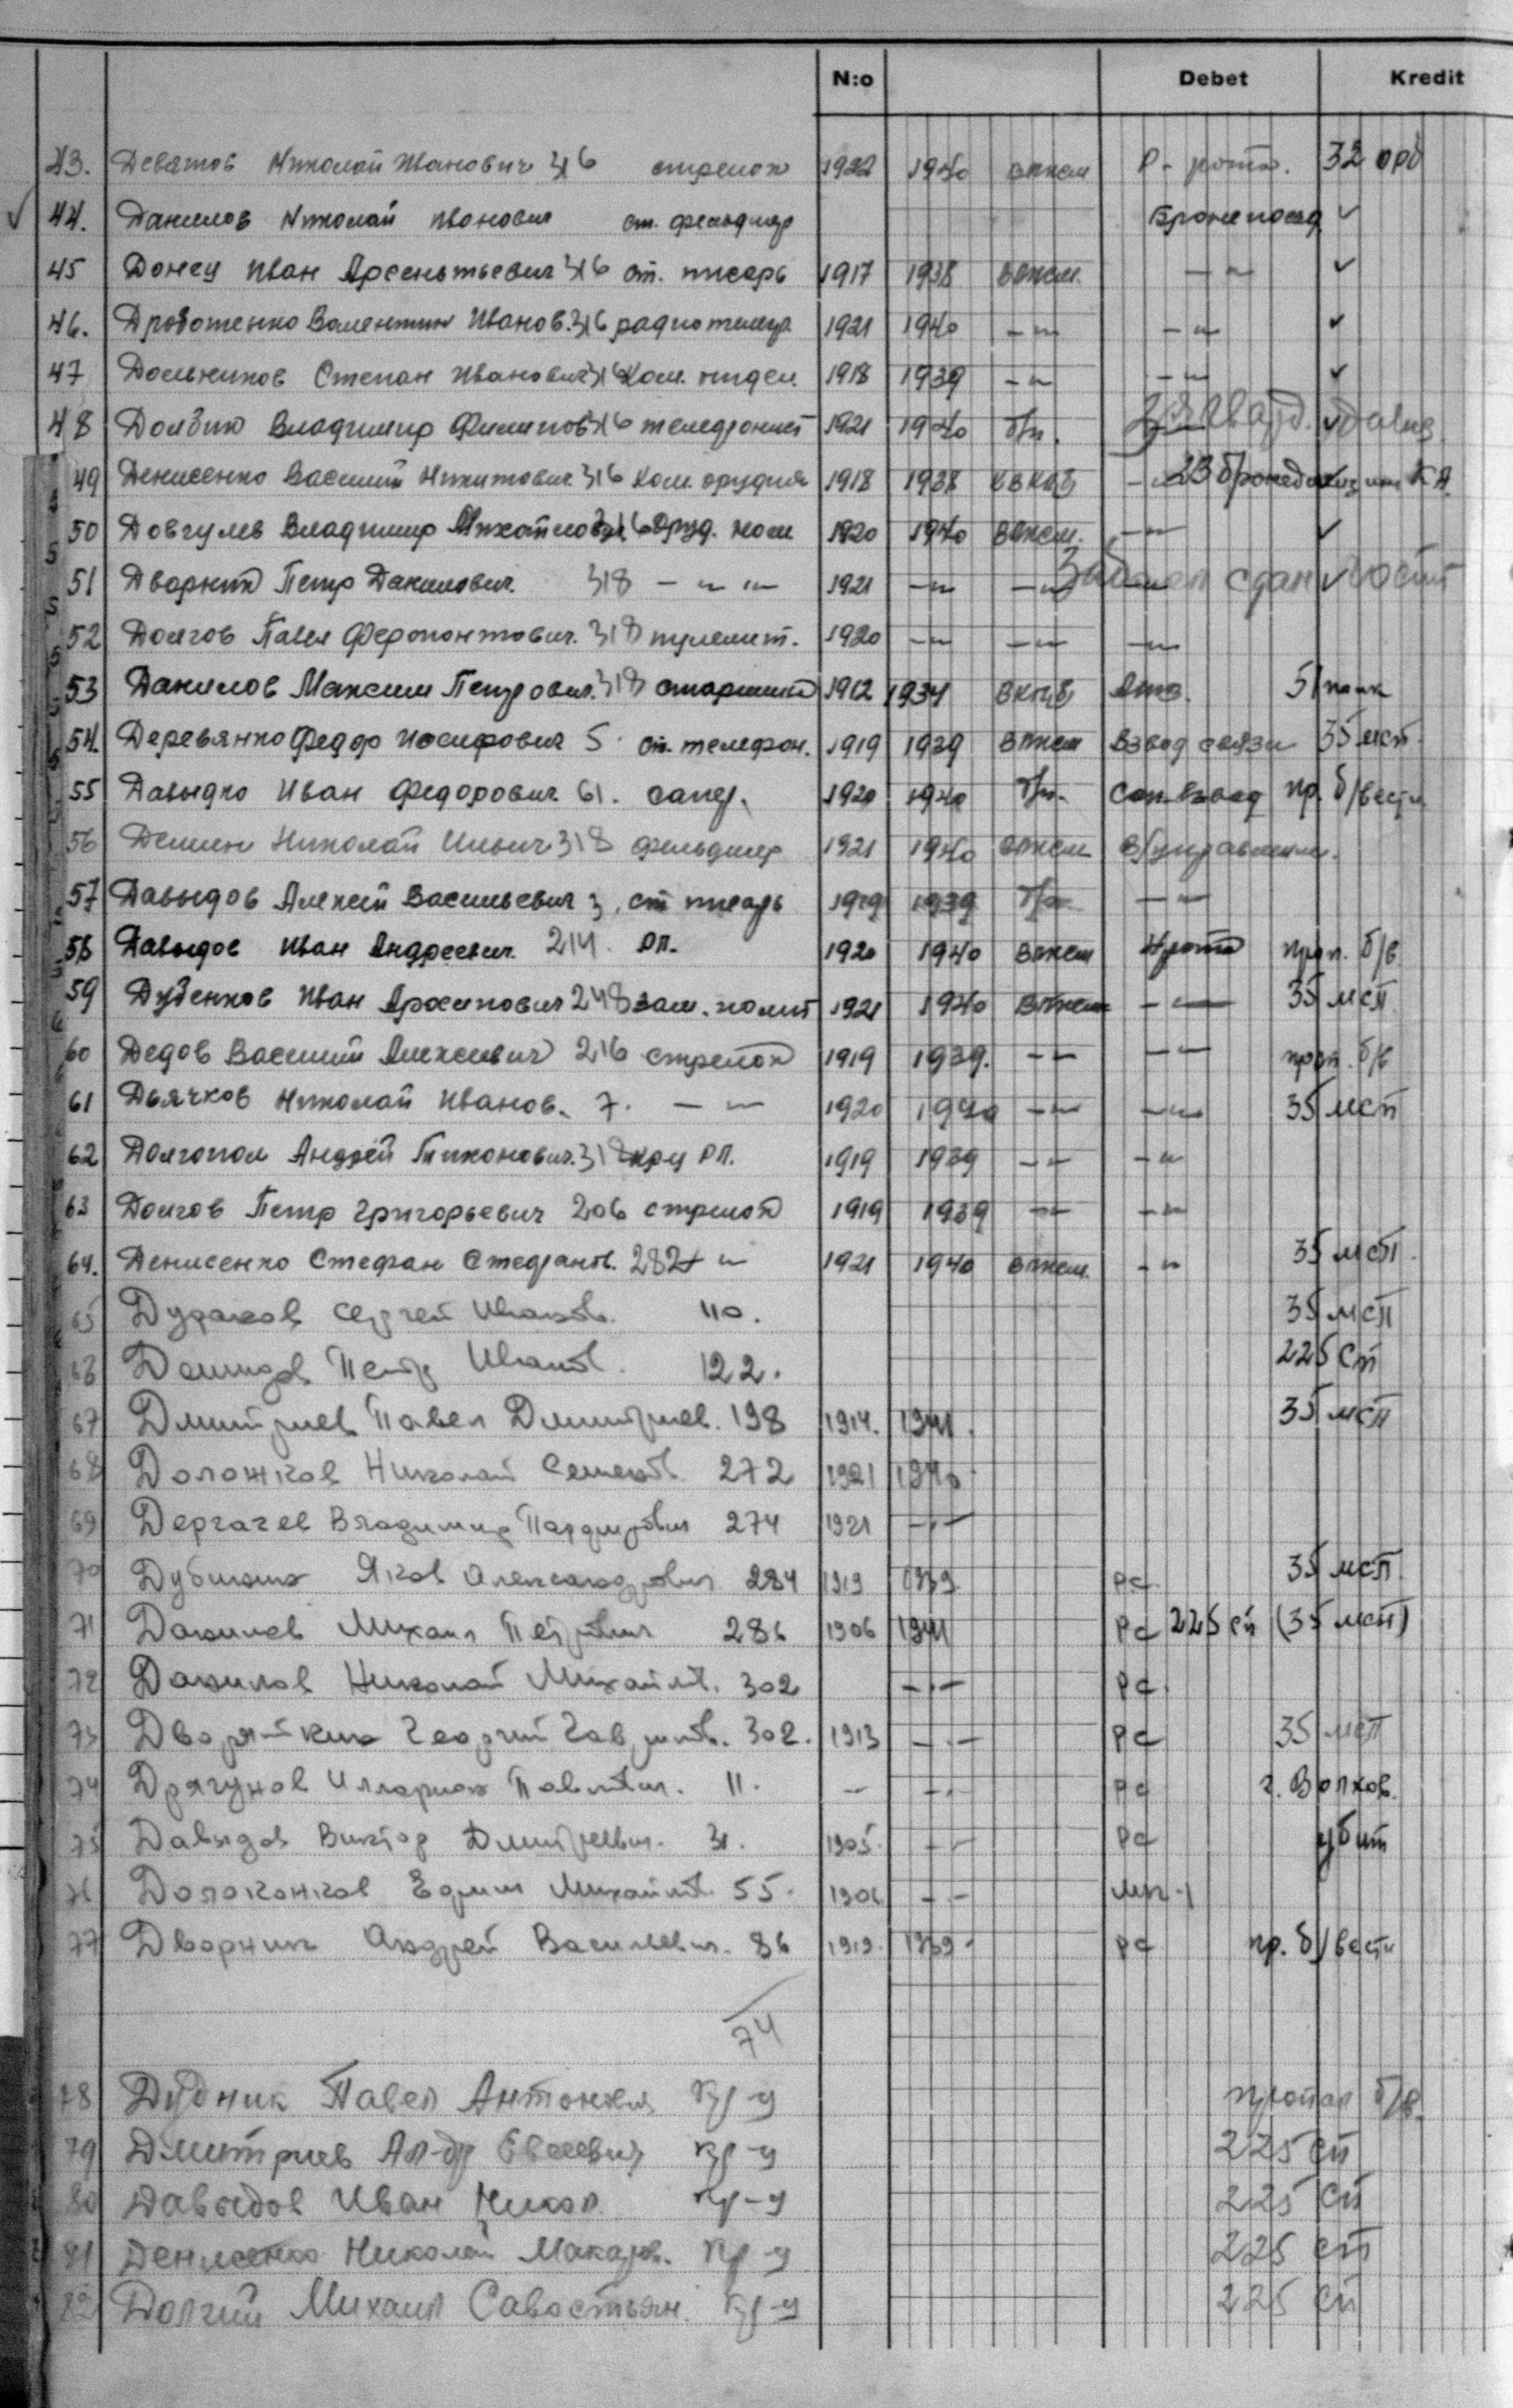 N:o Debet Kredit
43. Деватов Николай Иванович 316 стрелок 1922 1940 влксм Р-рота. 32 орд
✓ 44. Данилов Николай Иванович ст. фельдшер Бронепоезд ✓
45 Донец Иван Арсентьевич 316 ст. писарь 1917 1938 влксм. —"— ✓
46. Дроботенко Валентин Иванов. 316 радиотелегр 1921 1940 —"— —"— ✓
47 Дольников Степан Иванович 316 Ком. отдел. 1918 1939 —"— —"— ✓
48 Долбик Владимир Филипов 316 телефонист 1921 1940 б/п. ✓
49 Денисенко Василий Никитович 316 Ком. орудия 1918 1938 —"— 23 КА.
50 Довгулев Владимир Михайлович 316 оруд. ном 1920 1940 влксм. —"— ✓
51 Дворник Петр Данилович. 318 —"—"— 1921 —"— —"— сдан ✓
52 Долгов Павел Ферапонтович. 318 пулемет. 1920 —"— —"— —"—
53 Данилов Максим Петрович. 318 старшина 1912 1934 ВКПБ 51 полк
54. Деревянко Федор Иосифович 5. ст. телефон. 1919 1939 влксм Взвод связи 35 мсп.
55 Давыдко Иван Федорович 61. сапер. 1920 1940 б/п. Сап. взвод пр. б/вести
56 Демин Николай Ильич 318 фельдшер 1921 1940 влксм В/управлении.
57 Давыдов Алексей Васильевич 3, ст писарь 1919 1939 б/п —"—
58 Давыдов Иван Андреевич. 214. РП. 1920 1940 влксм 4 рота проп. б/в.
59 Дуденков Иван Архипович 248 зам. полит 1921 1940 влксм —"— 35 мсп.
60 Дедов Василий Алексеевич 216 стрелок 1919 1939. —"— —"— проп. б/в
61 Дьячков Николай Иванов. 7. —"— 1920 1940 —"— —"— 35 мсп
62 Долгопол Андрей Тихонович. 318 РП. 1919 1939 —"— —"—
63 Долгов Петр Григорьевич 206 стрелок 1919 1939 —"— —"—
64. Денисенко Стефан Стефанов. 282 —"— 1921 1940 влксм. —"— 35 мсп.
65 Дураков Сергей Иванов. 110. 35 мсп
66 Демидов Петр Иванов. 122. 225 сп
67 Дмитриев Павел Дмитриев. 198 1914. 1941. 35 мсп
68 Доложков Николай Семенов. 272 1921 1940.
69 Дергачев Владимир 274 1921 —"—
70 Дубинин Яков Александрович 284 1919 1939. РС. 35 мсп.
71 Данилов Михаил Петрович 286 1906 1941 РС 225 сп (35 мсп)
72 Данилов Николай Михайлов. 302 —"— РС.
73 Дворяйкин Георгий Гаврилов. 302. 1913 —"— РС 35 мсп
74 Дрягунов Илларион Павлович. 11. — —"— РС г. Волхов.
75 Давыдов Виктор Дмитриевич. 31. 1905. —"— РС убит
76 Долоконков Ефим Михайлов. 55. 1906 —"—
77 Дворник Андрей Васильевич. 86 1919. 1939. РС пр. б/вести
74
78 Дудник Павел Антонович кр-ц пропал б/в.
79 Дмитриев Ал-др Евсеевич кр-ц 225 сп
80 Давыдов Иван Никол. кр-ц 225 сп
81 Денисенко Николай Макаров. кр-ц 225 сп
82 Долгий Михаил Савостьян. кр-ц 225 сп